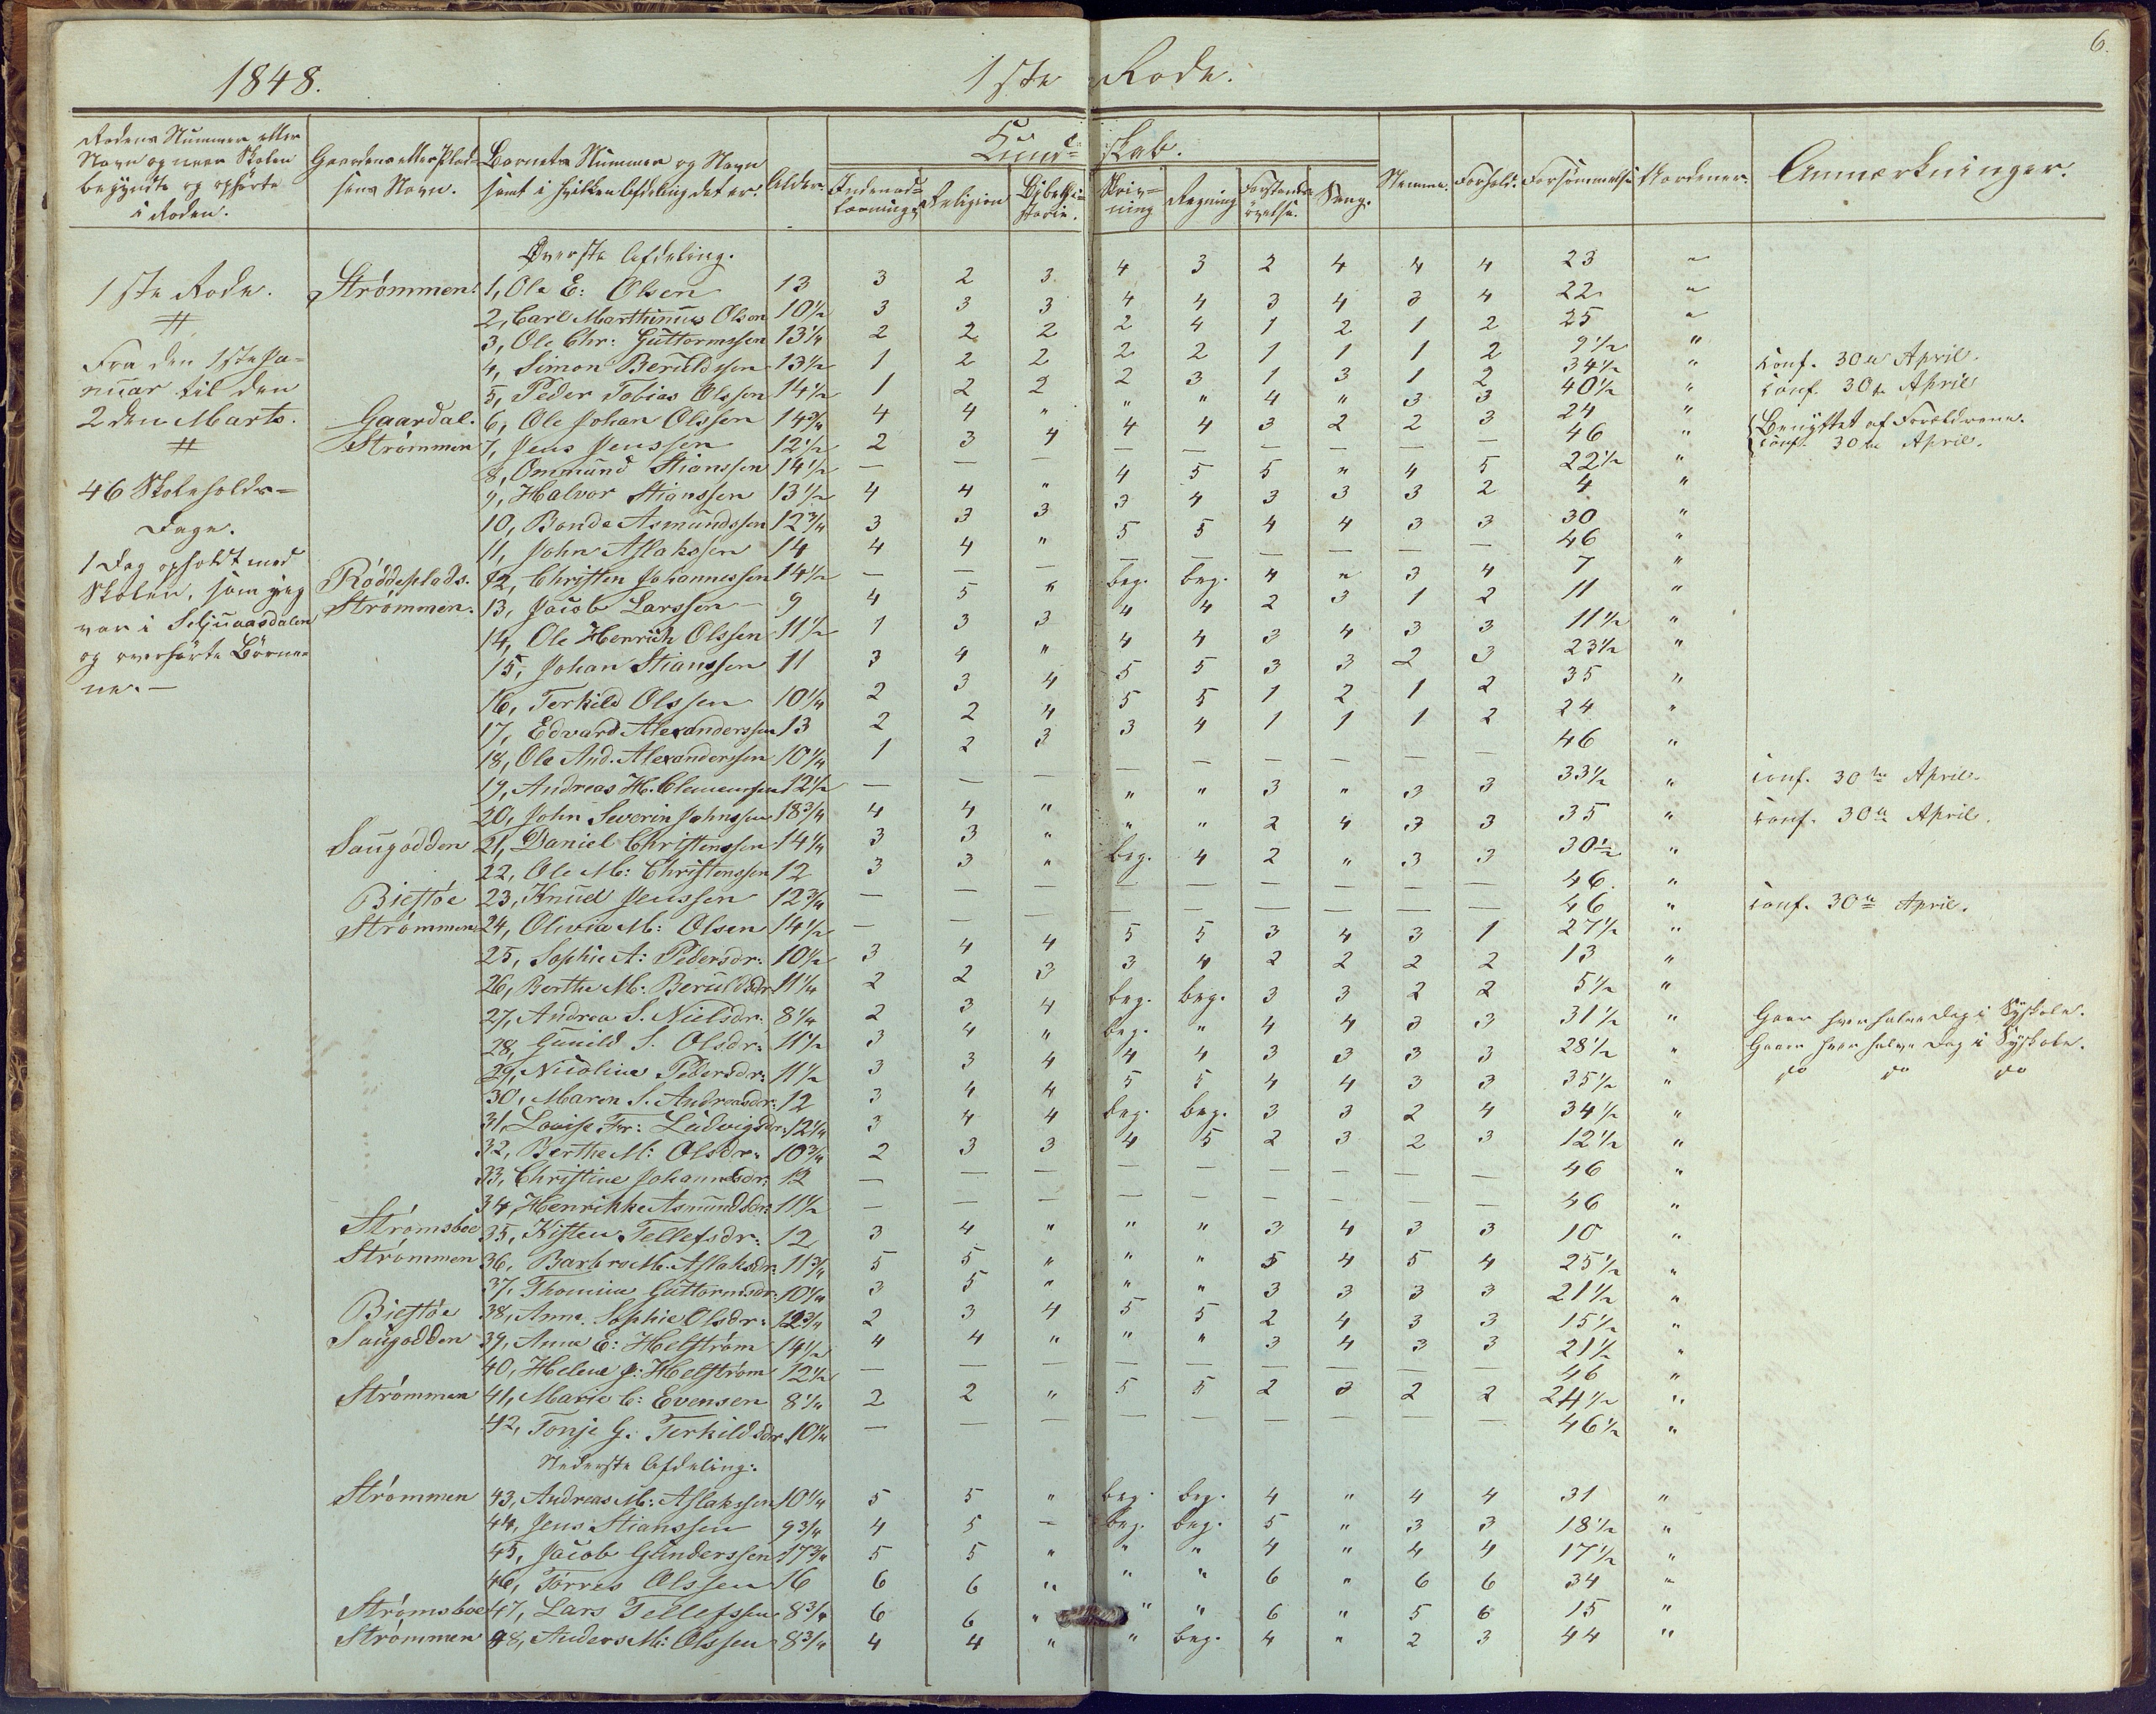 6.
1848. 1ste Rode.
Rodens Nummer eller Navn og naar Skolen begyndte og ophørte i Roden.
Gaardens eller Pladsens Navn.
Barnets Nummer og Navn samt i hvilken Afdeling det er.
Alder.
Kundskab.
Indenadlæsning
Religion
Bibelhistorie.
Skrivning
Regning
Forstandsøvelse.
Sang.
Nemme.
Forhold.
Forsømmelse
Anmærkninger.
1ste Rode.
Fra den 1ste Januar til den
2den Marts.
46 Skoleholds-
Dage.
1 Dag opholdt med
Skolen, som jeg
var i Seljuaasdalen
og overhørte Børne-
ne. —
Øverste Afdeling.
Strømmen. 1, Ole E: Olsen 13 3 2 3 4 3 2 4 4 4 23 "
2, Carl Marthinius Olsen 10½ 3 3 3 4 4 3 4 3 4 22 "
3, Ole Chr: Guttormssen 13¼ 2 2 2 2 4 1 2 1 2 25 "
4, Simon Beruldssen 13½ 1 2 2 2 2 1 1 1 2 9½ "
5, Peder Tobias Olssen 14½ 1 2 2 2 3 1 3 1 2 34½ " Conf. 30te April.
Gaardal. 6, Ole Johan Olssen 14¾ 4 4 " " " 4 " 3 3 40½ " Conf. 30te April
Strømmen 7, Jens Jenssen 12½ 2 3 4 4 4 3 2 2 3 24 "
8, Ommund Stianssen 14½ — — — — — — — — — 46 " Benyttet af Forældrene. Conf. 30te April.
9, Halvor Stianssen 13½ 4 4 " 4 5 5 " 4 5 22½ "
10, Bonde Asmundssen 12¾ 3 3 3 3 4 3 3 3 2 4 "
11, John Aslakssen 14 4 4 " 5 5 4 4 3 3 30 "
Røddeplads. 12, Christen Johannessen 14½ — — — — — — — — — 46 "
Strømmen. 13, Jacob Larssen 9 4 5 " beg. beg. 4 " 3 4 7 "
14, Ole Henrich Olssen 11½ 1 3 3 4 4 2 3 1 2 11 "
15, Johan Stianssen 11 3 4 " 4 4 3 4 3 3 11½ "
16, Terkild Olssen 10¼ 2 3 4 5 5 3 3 2 3 23½ "
17, Edvard Alexanderssen 13 2 2 4 5 5 1 2 1 2 35 "
18, Ole And. Alexanderssen 10¼ 1 2 3 3 4 1 1 1 2 24 "
19, Andreas H. Clemenssen 12½ — — — — — — — — — 46 "
20, John Severin Johnssen 18¾ 4 4 " " " 3 " 3 3 33½ " Conf. 30te April.
Saugodden 21, Daniel Christenssen 14¼ 3 3 " " " 2 4 3 3 35 " Conf. 30te April.
22, Ole M: Christenssen 12 3 3 " beg. 4 2 " 3 3 30½ "
Biestøe 23, Knud Jenssen 12¾ — — — — — — — — — 46. "
Strømmen 24, Olivia M: Olsen 14½ — — — — — — — — — 46 " Conf. 30te April.
25, Sophie A: Pedersdr: 10½ 3 4 4 5 5 3 4 3 1 27½ "
26, Berthe M: Beruldsdr 11¼ 2 2 3 3 4 2 2 2 2 13 "
27, Andrea S. Nielsdr. 8¼ 2 3 4 beg. beg. 3 3 2 2 5½ "
28, Gunild S. Olsdr: 11½ 3 4 " beg. " 4 4 3 3 31½ " Gaar hver halve Dag i Syskole.
29, Nicoline Pedersdr: 11½ 3 3 4 4 4 3 3 3 3 28½ " Gaaer hver halve Dag i Syskole.
30, Maren S. Andreasdr: 12 3 4 4 5 5 4 4 3 3 35½ " do do do
31, Lovise Fr: Ludvigsdr: 12¼ 3 4 4 beg. beg. 3 3 2 4 34½ "
32, Berthe M: Olsdr: 10¾ 2 3 3 4 5 2 3 2 3 12½ "
33, Christine Johannesdr: 12 — — — — — — — — — 46 "
34, Henrikke Asmundsdr: 11½ — — — — — — — — — 46 "
Strømsboe 35, Kisten Tellefsdr: 12 3 4 " " " 3 4 3 3 10 "
Strømmen 36, Barbro M. Aslaksdr: 11¾ 5 5 " " " 5 4 5 4 25½ "
37, Thomine Guttormsdr: 10¼ 3 5 " " " 3 3 3 3 21½ "
Biestøe 38, Anne Sophie Olsdr: 12¾ 2 3 4 5 5 2 4 3 3 15½ "
Saugodden 39, Anna E: Helstrøm 14½ 4 4 " " " 3 4 3 3 21½ "
40, Helene J: Helstrøm 12½ — — — — — — — — — 46 "
Strømmen 41, Marie C: Evensen 8¼ 2 2 " 5 5 2 3 2 2 24½ "
42, Tonje G. Terkildsdr 10¼ — — — — — — — — — 46½ "
Nederste Afdeling:
Strømmen 43, Andreas M: Aslakssen 10¼ 5 5 " beg. beg. 4 " 4 4 31 "
44, Jens Stianssen 9¾ 4 5 — beg. beg. 5 " 3 3 18½ "
45, Jacob Gunderssen 17¾ 5 5 " " " 4 " 4 4 17½ "
46, Torres Olssen 16 6 6 " " " 6 " 6 6 34 "
Strømsboe 47, Lars Tellefssen 8¾ 6 6 " " " 6 " 5 6 15 "
Strømmen 48, Anders M: Olssen 8¾ 4 4 " " beg. 4 " 2 3 44 "